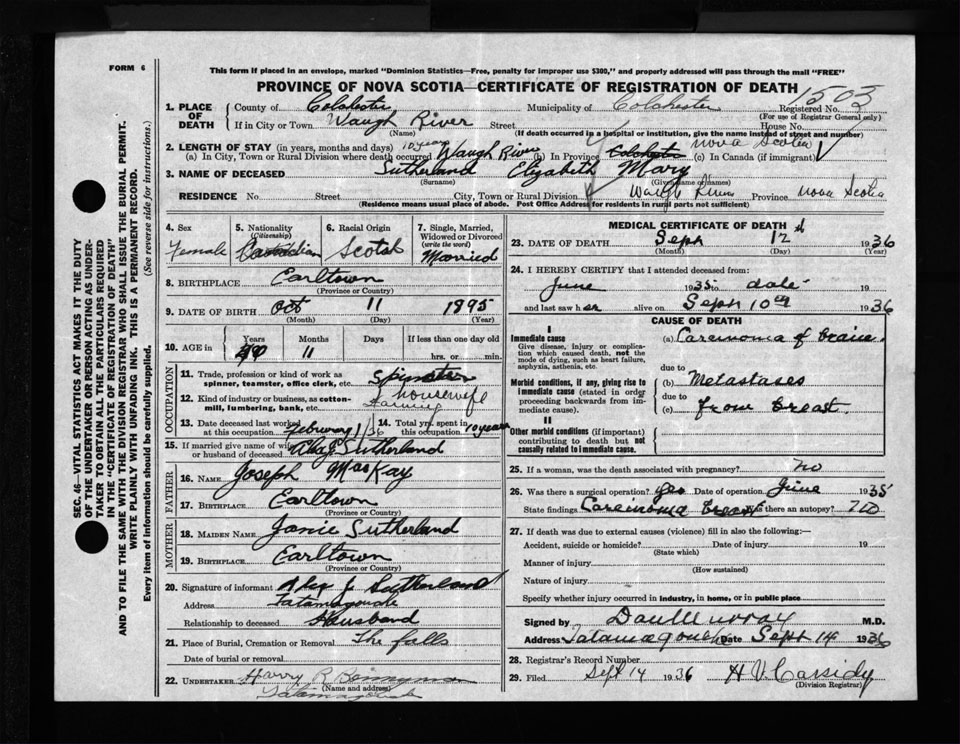 FORM 6
This form if placed in an envelope, marked "Dominion Statistics—Free, penalty for improper use $300," and properly addressed will pass through the mail "FREE"
PROVINCE OF NOVA SCOTIA—CERTIFICATE OF REGISTRATION OF DEATH
1503
1. PLACE OF DEATH County of Colchester Municipality of Colchester Registered No.
(For use of Registrar General only)
If in City or Town Waugh River Street House No.
(Name) (If death occurred in a hospital or institution, give the name instead of street and number)
2. LENGTH OF STAY (in years, months and days) 10 years Nova Scotia
(a) In City, Town or Rural Division where death occurred Waugh River (b) In Province Colchester (c) In Canada (if immigrant)
3. NAME OF DECEASED Sutherland Elizabeth Mary
(Surname) (Given name or names)
RESIDENCE No. Street City, Town or Rural Division Waugh River Province Nova Scotia
(Residence means usual place of abode. Post Office Address for residents in rural parts not sufficient)
4. Sex Female
5. Nationality (Citizenship) Canadian
6. Racial Origin Scotch
7. Single, Married, Widowed or Divorced (write the word) Married
8. BIRTHPLACE Earltown
(Province or Country)
9. DATE OF BIRTH Oct 11 1895
(Month) (Day) (Year)
10. AGE in Years Months Days If less than one day old
40 11 hrs. or min.
OCCUPATION
11. Trade, profession or kind of work as spinner, teamster, office clerk, etc. Spinster
housewife
12. Kind of industry or business, as cotton-mill, lumbering, bank, etc. Farming
13. Date deceased last worked at this occupation February 1/36 14. Total yrs. spent in this occupation 10 years
15. If married give name of wife or husband of deceased Alex J Sutherland
FATHER
16. NAME Joseph MacKay
17. BIRTHPLACE Earltown
(Province or Country)
MOTHER
18. MAIDEN NAME Janie Sutherland
19. BIRTHPLACE Earltown
(Province or Country)
20. Signature of informant Alex J. Sutherland
Address Tatamagouche
Relationship to deceased Husband
21. Place of Burial, Cremation or Removal The falls
Date of burial or removal
22. UNDERTAKER Harry R Bonnyman
(Name and address)
Tatamagouche
MEDICAL CERTIFICATE OF DEATH
23. DATE OF DEATH Sept 12th 1936
(Month) (Day) (Year)
24. I HEREBY CERTIFY that I attended deceased from:
June 1935 to date 19
and last saw her alive on Sept 10th 1936
CAUSE OF DEATH
I
Immediate cause (a) Carcinoma of brain
Give disease, injury or complication which caused death, not the mode of dying, such as heart failure, asphyxia, asthenia, etc.
due to
Morbid conditions, if any, giving rise to immediate cause (stated in order proceeding backwards from immediate cause). (b) Metastases
due to
(c) from breast
II
Other morbid conditions (if important) contributing to death but not causally related to immediate cause.
25. If a woman, was the death associated with pregnancy? no
26. Was there a surgical operation? yes Date of operation June 1935
State findings Carcinoma breast Was there an autopsy? no
27. If death was due to external causes (violence) fill in also the following:—
Accident, suicide or homicide? Date of injury 19
(State which)
Manner of injury
(How sustained)
Nature of injury
Specify whether injury occurred in industry, in home, or in public place
Signed by Dan Murray M.D.
Address Tatamagouche Date Sept 14 1936
28. Registrar's Record Number
29. Filed Sept 14 1936 H V. Cassidy
(Division Registrar)
SEC. 46—VITAL STATISTICS ACT MAKES IT THE DUTY
OF THE UNDERTAKER OR PERSON ACTING AS UNDER-
TAKER TO OBTAIN ALL THE PARTICULARS REQUIRED
IN THE "CERTIFICATE OF REGISTRATION OF DEATH"
AND TO FILE THE SAME WITH THE DIVISION REGISTRAR WHO SHALL ISSUE THE BURIAL PERMIT.
WRITE PLAINLY WITH UNFADING INK. THIS IS A PERMANENT RECORD.
Every item of information should be carefully supplied. (See reverse side for instructions.)